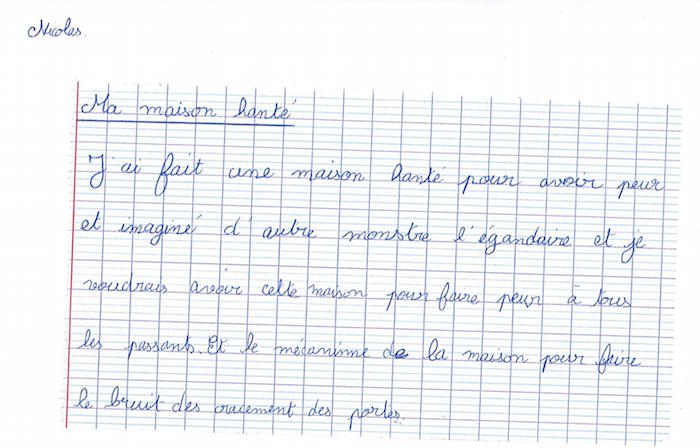 Nicolas.
Ma maison hanté
J'ai fait une maison hanté pour avoir peur
et imaginé d'autre monstre l'égandaire et je
voudrais avoir cette maison pour faire peur à tous
les passants. Et le mécaninme de la maison pour faire
le bruit des cracement des portes.